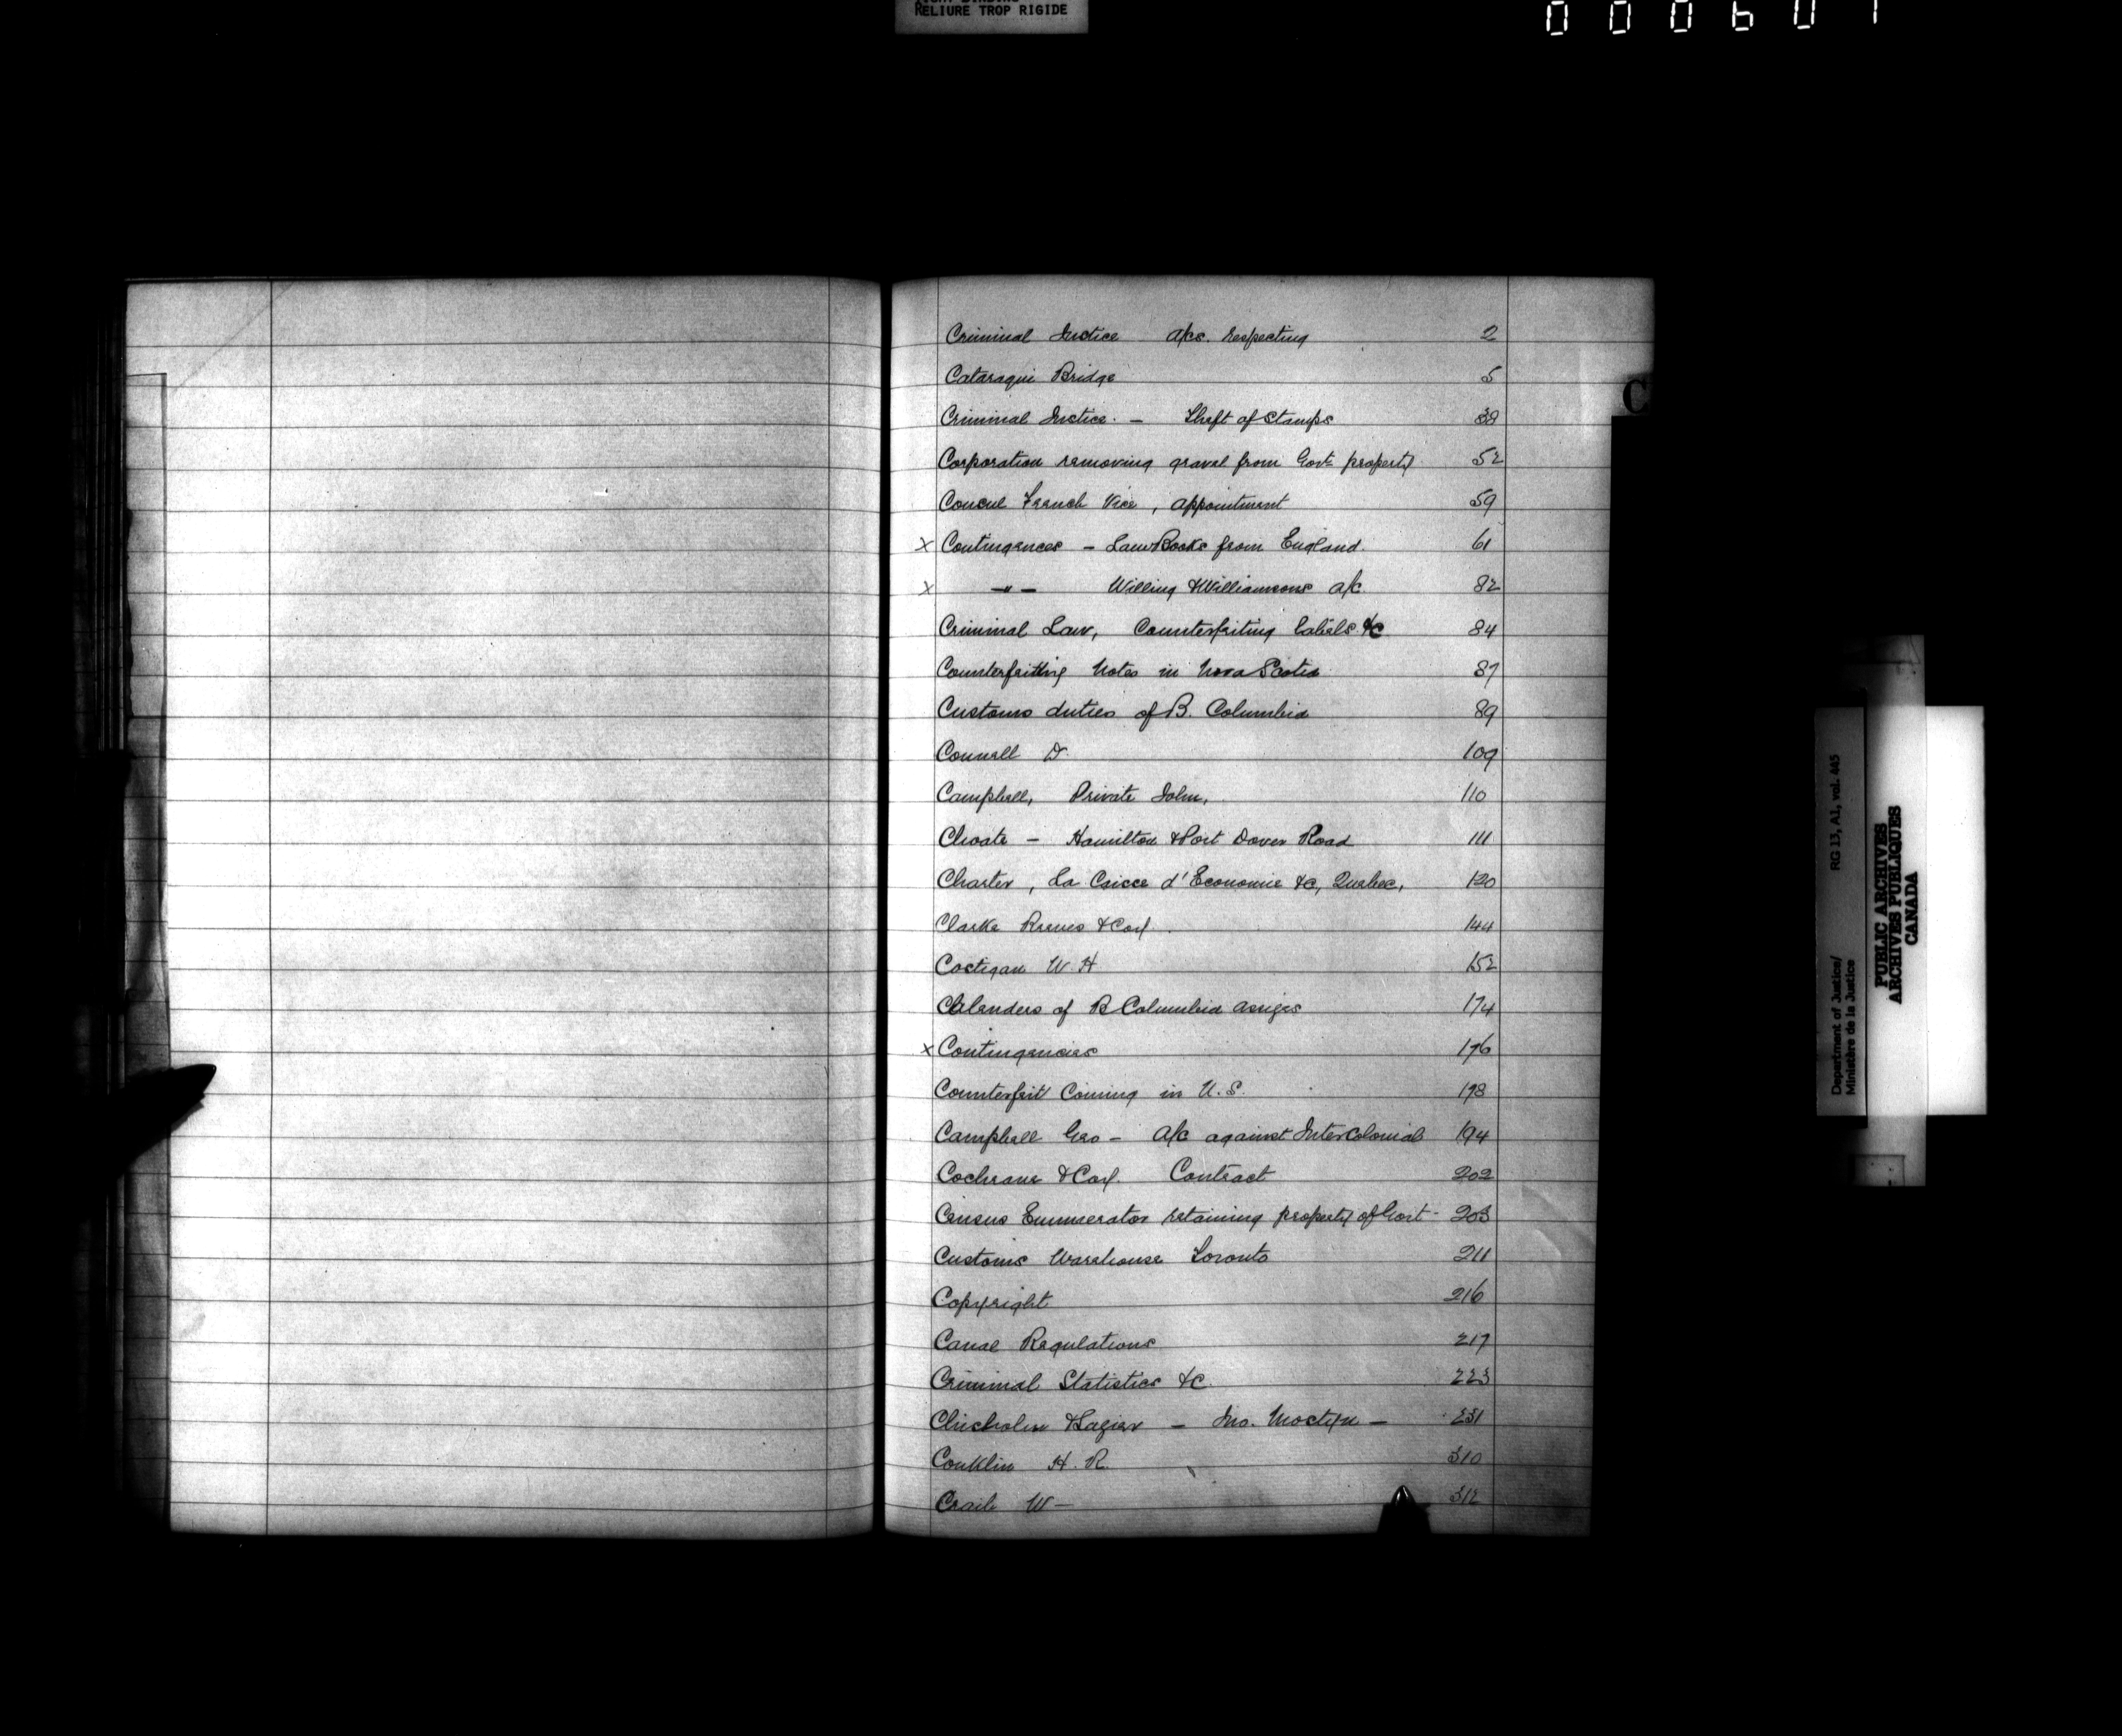 RELIURE TROP RIGIDE
000607
C
Criminal Justice a/cs. respecting 2
Cataraqui Bridge 5
Criminal Justice. – Theft of Stamps 38
Corporation removing gravel from Govt property 52
Consul French Vice, appointment 59
x Contingences – Law Books from England. 61
x –〃– Willing & Williamsons a/c. 82
Criminal Law, Counterfeiting labels &c 84
Counterfeitting Notes in Nova Scotia 87
Customs duties of B. Columbia 89
Connell D. 109
Campbell, Private John, 110
Choate – Hamilton & Port Dover Road 111
Charter, La Caisse d'Economie &c, Quebec, 120
Clarke Reeves & Coy. 144
Costigan W. H 152
Calenders of B Columbia assizes 174
x Contingencies 176
Counterfeit Coining in U.S. 178
Campbell Geo – A/c against InterColonial 194
Cochrane & Coy. Contract 202
Census Enumerator retaining property of Govt – 203
Customs Warehouse Toronto 211
Copyright 216
Canal Regulations 217
Criminal Statistics &c. 223
Chisholm & Lazier – Jno. Mostyn – 231
Conklin H. R. 310
Craib W – 312
Department of Justice/ RG 13, A1, vol. 445
Ministère de la Justice
PUBLIC ARCHIVES
ARCHIVES PUBLIQUES
CANADA